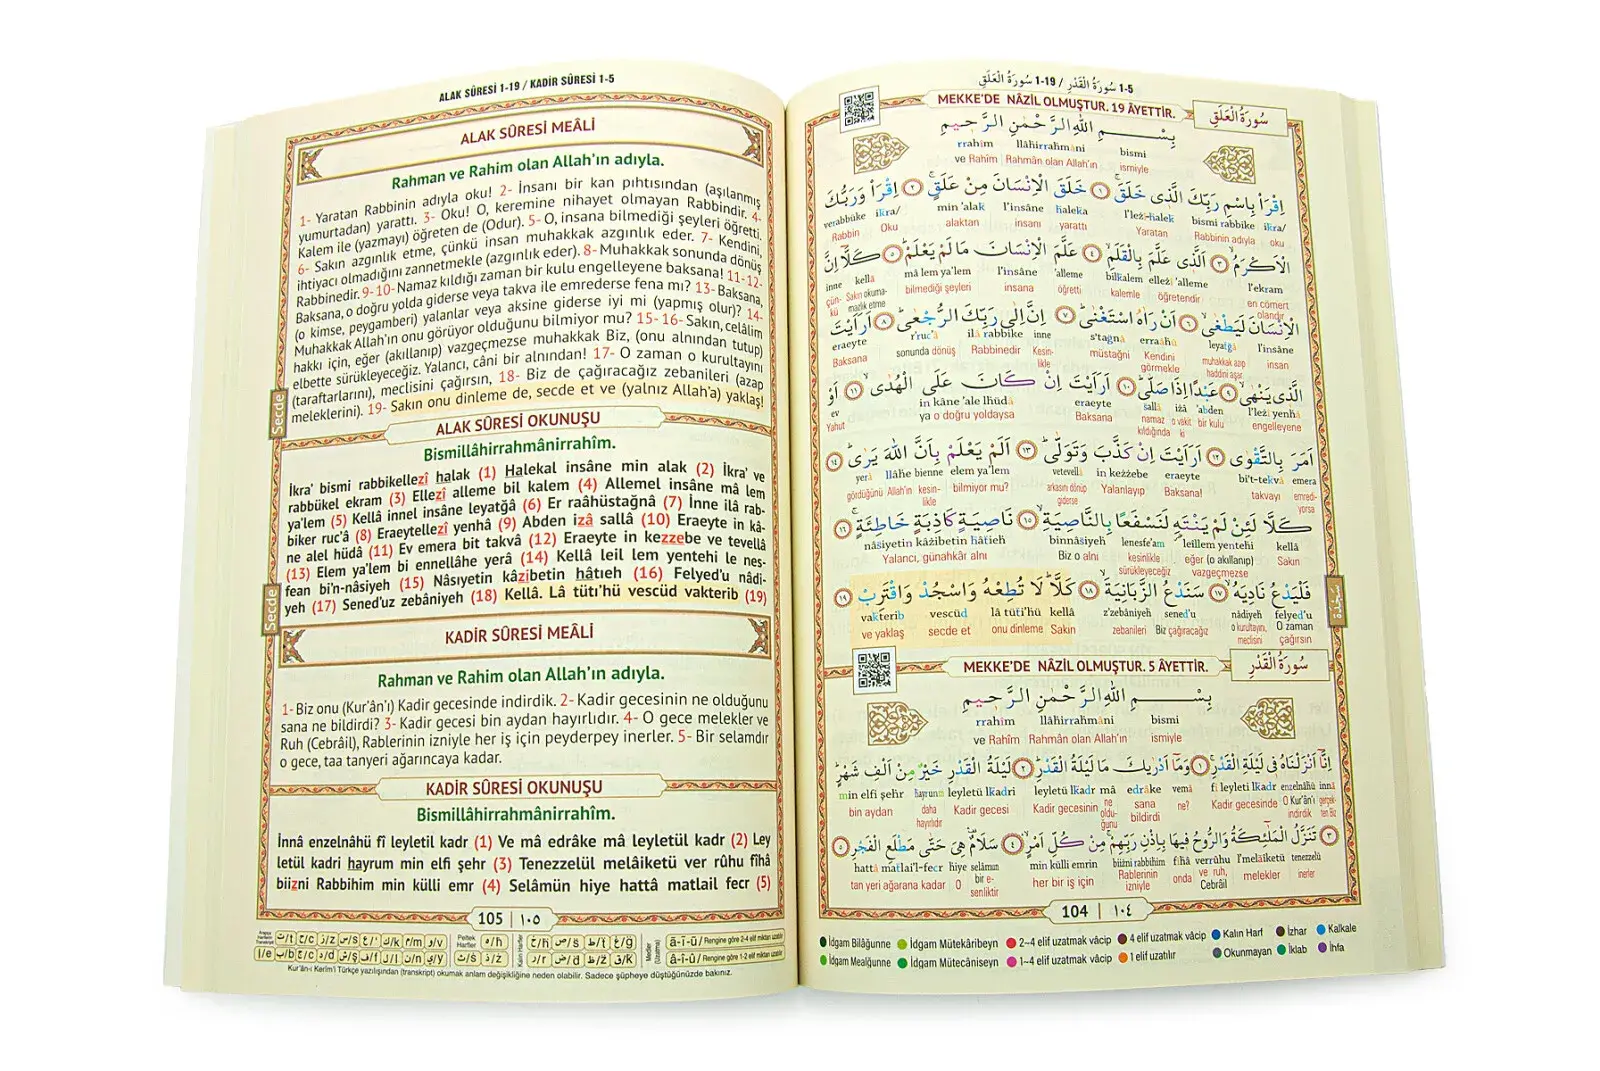 ALAK SÛRESİ 1-19 / KADİR SÛRESİ 1-5
ALAK SÛRESİ MEÂLİ
Rahman ve Rahim olan Allah'ın adıyla.
1- Yaratan Rabbinin adıyla oku! 2- İnsanı bir kan pıhtısından (aşılanmış
yumurtadan) yarattı. 3- Oku! O, keremine nihayet olmayan Rabbindir. 4-
Kalem ile (yazmayı) öğreten de (Odur). 5- O, insana bilmediği şeyleri öğretti.
6- Sakın azgınlık etme, çünkü insan muhakkak azgınlık eder. 7- Kendini,
ihtiyacı olmadığını zannetmekle (azgınlık eder). 8- Muhakkak sonunda dönüş
Rabbinedir. 9-10- Namaz kıldığı zaman bir kulu engelleyene baksana! 11-12-
Baksana, o doğru yolda giderse veya takva ile emrederse fena mı? 13- Baksana,
(o kimse, peygamberi) yalanlar veya aksine giderse iyi mi (yapmış olur)? 14-
Muhakkak Allah'ın onu görüyor olduğunu bilmiyor mu? 15-16- Sakın, celâlim
hakkı için, eğer (akıllanıp) vazgeçmezse muhakkak Biz, (onu alnından tutup)
elbette sürükleyeceğiz. Yalancı, câni bir alnından! 17- O zaman o kurultayını
(taraftarlarını), meclisini çağırsın, 18- Biz de çağıracağız zebanileri (azap
meleklerini). 19- Sakın onu dinleme de, secde et ve (yalnız Allah'a) yaklaş!
Secde
ALAK SÛRESİ OKUNUŞU
Bismillâhirrahmânirrahîm.
İkra' bismi rabbikellezî halak (1) Halekal insâne min alak (2) İkra' ve
rabbükel ekram (3) Ellezî alleme bil kalem (4) Allemel insâne mâ lem
ya'lem (5) Kellâ innel insâne leyatğâ (6) Er raâhüstağnâ (7) İnne ilâ rab-
biker ruc'â (8) Eraeytellezî yenhâ (9) Abden izâ sallâ (10) Eraeyte in kâ-
ne alel hüdâ (11) Ev emera bit takvâ (12) Eraeyte in kezzebe ve tevellâ
(13) Elem ya'lem bi ennellâhe yerâ (14) Kellâ leil lem yentehi le nes-
fean bi'n-nâsiyeh (15) Nâsıyetin kâzibetin hâtıeh (16) Felyed'u nâdi-
yeh (17) Sened'uz zebâniyeh (18) Kellâ. Lâ tütı'hü vescüd vakterib (19)
Secde
KADİR SÛRESİ MEÂLİ
Rahman ve Rahim olan Allah'ın adıyla.
1- Biz onu (Kur'ân'ı) Kadir gecesinde indirdik. 2- Kadir gecesinin ne olduğunu
sana ne bildirdi? 3- Kadir gecesi bin aydan hayırlıdır. 4- O gece melekler ve
Ruh (Cebrâil), Rablerinin izniyle her iş için peyderpey inerler. 5- Bir selamdır
o gece, taa tanyeri ağarıncaya kadar.
KADİR SÛRESİ OKUNUŞU
Bismillâhirrahmânirrahîm.
İnnâ enzelnâhü fî leyletil kadr (1) Ve mâ edrâke mâ leyletül kadr (2) Ley
letül kadri hayrum min elfi şehr (3) Tenezzelül melâiketü ver rûhu fîhâ
biizni Rabbihim min külli emr (4) Selâmün hiye hattâ matlail fecr (5)
105 | ١٠٥
Kur'ân-ı Kerîm'i Türkçe yazılışından (transkript) okumak anlam değişikliğine neden olabilir. Sadece şüpheye düştüğünüzde bakınız.
1-5 سُورَةُ الْقَدْرِ / 1-19 سُورَةُ الْعَلَقِ
MEKKE'DE NÂZİL OLMUŞTUR. 19 ÂYETTİR.
سُورَةُ الْعَلَقِ
بِسْمِ اللّٰهِ الرَّحْمٰنِ الرَّحٖيمِ
bismi llâhirrahmâni rrahîm
ismiyle Rahmân olan Allah'ın ve Rahîm
اِقْرَاْ بِاسْمِ رَبِّكَ الَّذٖى خَلَقَۚ ١ خَلَقَ الْاِنْسَانَ مِنْ عَلَقٍۚ ٢ اِقْرَاْ وَرَبُّكَ
ikra/ bismi rabbike l'lezî halak haleka l'insâne min 'alak ikra/ verabbüke
oku Rabbinin adıyla Yaratan yarattı insanı alaktan Oku Rabbin
الْاَكْرَمُۙ ٣ اَلَّذٖى عَلَّمَ بِالْقَلَمِۙ ٤ عَلَّمَ الْاِنْسَانَ مَا لَمْ يَعْلَمْؕ ٥ كَلَّٓا اِنَّ
l'ekram ellezî 'alleme bilkalem 'alleme l'insâne mâ lem ya'lem kella inne
en cömert olandır öğretendir kalemle öğretti insana bilmediği şeyleri Sakın okumamazlık etme çünkü
الْاِنْسَانَ لَيَطْغٰىۙ ٦ اَنْ رَاٰهُ اسْتَغْنٰىؕ ٧ اِنَّ اِلٰى رَبِّكَ الرُّجْعٰىؕ ٨ اَرَاَيْتَ
l'insâne leyatğâ erraâhü s'tağnâ inne ilâ rabbike r'ruc'â eraeyte
insan muhakkak azıp haddini aşar Kendini görmekle müstağni Kesinlikle Rabbinedir sonunda dönüş Baksana
الَّذٖى يَنْهٰىۙ ٩ عَبْدًا اِذَا صَلّٰىؕ ١٠ اَرَاَيْتَ اِنْ كَانَ عَلَى الْهُدٰىۙ ١١ اَوْ
l'lezî yenhâ 'abden izâ sallâ eraeyte in kâne 'ale lhüdâ ev
engelleyene bir kulu o vakit ki namaz kıldığında Baksana ya o doğru yoldaysa Yahut
اَمَرَ بِالتَّقْوٰىؕ ١٢ اَرَاَيْتَ اِنْ كَذَّبَ وَتَوَلّٰىؕ ١٣ اَلَمْ يَعْلَمْ بِاَنَّ اللّٰهَ يَرٰىؕ ١٤
emera bi't-tekvâ eraeyte in kezzebe vetevellâ elem ya'lem bienne llâhe yerâ
emrediyorsa takvayı Baksana! Yalanlayıp arkasını dönüp giderse bilmiyor mu? kesinlikle Allah'ın gördüğünü
كَلَّا لَئِنْ لَمْ يَنْتَهِ لَنَسْفَعًا بِالنَّاصِيَةِۙ ١٥ نَاصِيَةٍ كَاذِبَةٍ خَاطِئَةٍۚ ١٦
kellâ leillem yentehi lenesfe'am binnâsiyeh nâsiyetin kâzibetin hâtieh
Sakın eğer (o akıllanıp) vazgeçmezse kesinlikle sürükleyeceğiz Biz o alnı Yalancı, günahkâr alnı
فَلْيَدْعُ نَادِيَهُۙ ١٧ سَنَدْعُ الزَّبَانِيَةَۙ ١٨ كَلَّاؕ لَا تُطِعْهُ وَاسْجُدْ وَاقْتَرِبْ ١٩
felyed'u nâdiyeh sened'u z'zebâniyeh kellâ lâ tüti'hü vescüd vakterib
O zaman çağırsın o kurultayını, meclisini Biz çağıracağız zebanileri Sakın onu dinleme secde et ve yaklaş
MEKKE'DE NÂZİL OLMUŞTUR. 5 ÂYETTİR.
سُورَةُ الْقَدْرِ
بِسْمِ اللّٰهِ الرَّحْمٰنِ الرَّحٖيمِ
bismi llâhirrahmâni rrahîm
ismiyle Rahmân olan Allah'ın ve Rahîm
اِنَّٓا اَنْزَلْنَاهُ فٖى لَيْلَةِ الْقَدْرِۚ ١ وَمَٓا اَدْرٰيكَ مَا لَيْلَةُ الْقَدْرِؕ ٢ لَيْلَةُ الْقَدْرِ خَيْرٌ مِنْ اَلْفِ شَهْرٍؕ
innâ enzelnâhü fî leyleti lkadr vemâ edrâke mâ leyletü lkadr leyletü lkadri hayrum min elfi şehr
gerçekten Biz O Kur'ân'ı indirdik Kadir gecesinde ne? sana bildirdi ne olduğunu Kadir gecesinin Kadir gecesi daha hayırlıdır bin aydan
٣ تَنَزَّلُ الْمَلٰٓئِكَةُ وَالرُّوحُ فٖيهَا بِاِذْنِ رَبِّهِمْۚ مِنْ كُلِّ اَمْرٍۙ ٤ سَلَامٌ هِىَ حَتّٰى مَطْلَعِ الْفَجْرِ ٥
tenezzelü l'melâiketü verrûhu fîhâ biizni rabbihim min külli emrin selâmün hiye hattâ matlai'l-fecr
inerler melekler ve ruh, Cebrâil onda Rablerinin izniyle her bir iş için bir esenliktir O tan yeri ağarana kadar
104 | ١٠٤
İdgam Bilâğunne İdgam Mütekâribeyn 2~4 elif uzatmak vâcip 4 elif uzatmak vâcip Kalın Harf İzhar Kalkale
İdgam Mealğunne İdgam Mütecâniseyn 1~4 elif uzatmak vâcip 1 elif uzatılır Okunmayan İklab İhfa